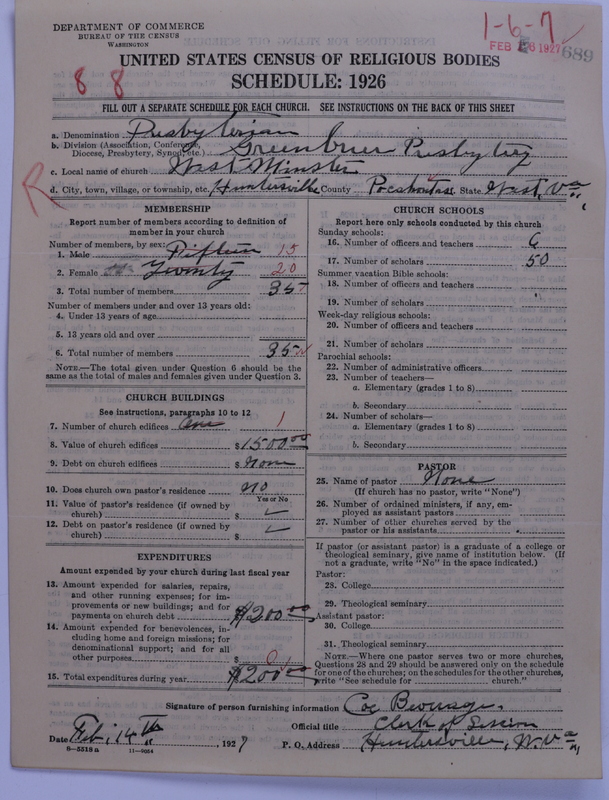 DEPARTMENT OF COMMERCE
BUREAU OF THE CENSUS
WASHINGTON
1-6-7
FEB 16 1927
689
UNITED STATES CENSUS OF RELIGIOUS BODIES
8 8
SCHEDULE: 1926
FILL OUT A SEPARATE SCHEDULE FOR EACH CHURCH. SEE INSTRUCTIONS ON THE BACK OF THIS SHEET
a. Denomination Presbyterian
b. Division (Association, Conference, Diocese, Presbytery, Synod, etc.) Greenbrier Presbytery
c. Local name of church West Minster
d. City, town, village, or township, etc. Huntersville County Pocahontas State West, Va
MEMBERSHIP
Report number of members according to definition of member in your church
Number of members, by sex:
1. Male Fifteen 15
2. Female Twenty 20
3. Total number of members 35
Number of members under and over 13 years old:
4. Under 13 years of age
5. 13 years old and over
6. Total number of members 35
NOTE.—The total given under Question 6 should be the same as the total of males and females given under Question 3.
CHURCH BUILDINGS
See instructions, paragraphs 10 to 12
7. Number of church edifices One 1
8. Value of church edifices $1500.00
9. Debt on church edifices $ None
10. Does church own pastor's residence No
Yes or No
11. Value of pastor's residence (if owned by church) $
12. Debt on pastor's residence (if owned by church) $
EXPENDITURES
Amount expended by your church during last fiscal year
13. Amount expended for salaries, repairs, and other running expenses; for improvements or new buildings; and for payments on church debt $200.00
14. Amount expended for benevolences, including home and foreign missions; for denominational support; and for all other purposes $ 0
15. Total expenditures during year $200.00
CHURCH SCHOOLS
Report here only schools conducted by this church
Sunday schools:
16. Number of officers and teachers 6
17. Number of scholars 50
Summer vacation Bible schools:
18. Number of officers and teachers
19. Number of scholars
Week-day religious schools:
20. Number of officers and teachers
21. Number of scholars
Parochial schools:
22. Number of administrative officers
23. Number of teachers—
a. Elementary (grades 1 to 8)
b. Secondary
24. Number of scholars—
a. Elementary (grades 1 to 8)
b. Secondary
PASTOR
25. Name of pastor None
(If church has no pastor, write "None")
26. Number of ordained ministers, if any, employed as assistant pastors
27. Number of other churches served by the pastor or his assistants
If pastor (or assistant pastor) is a graduate of a college or theological seminary, give name of institution below. (If not a graduate, write "No" in the space indicated.)
Pastor:
28. College
29. Theological seminary
Assistant pastor:
30. College
31. Theological seminary
NOTE.—Where one pastor serves two or more churches, Questions 28 and 29 should be answered only on the schedule for one of the churches; on the schedules for the other churches, write "See schedule for church."
Signature of person furnishing information
Official title Clerk of Session
Date Feb, 14th, 1927 P. O. Address Huntersville, W. Va
8—5518a 11—9064